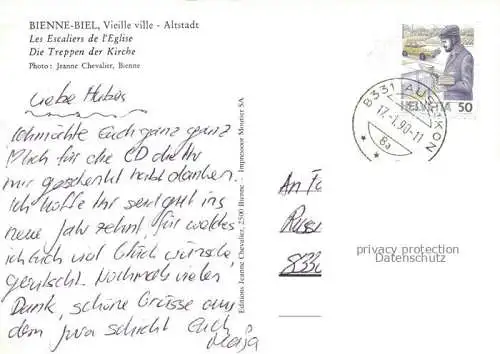 BIENNE-BIEL, Vieille ville - Altstadt
Les Escaliers de l'Eglise
Die Treppen der Kirche
Photo: Jeanne Chevalier, Bienne
Liebe Hubers
Ich möchte Euch ganz ganz
lich für die CD die Ihr
mir geschenkt habt danken.
Ich hoffe Ihr seid gut ins
neue Jahrzehnt für welches
ich Euch viel Glück wünsche,
gerutscht. Nochmals vielen
Dank, schöne Grüsse aus
dem Jura schickt Euch
Maja
Editions Jeanne Chevalier, 2500 Bienne - Impressoor Moutier SA
HELVETIA 50
8331 AUSLIKON
17.-1.90-11
8a
An Fa
833
privacy protection
Datenschutz